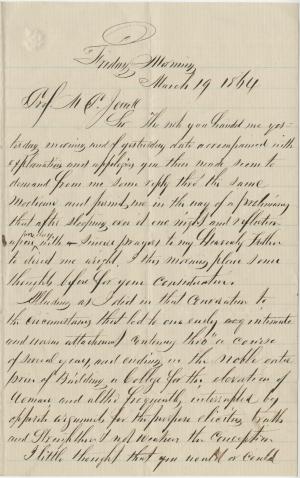 Friday Morning
March 19 1864
Prof M P. Jewett
Sir The note you handed me yes-
terday morning and of yesterday date accompanied with
explanation and apologies you then made seem to
demand from me some reply thro' the same
Medium and permit me in the way of a preliminary
that after sleeping over it one night and reflection
upon it with sincere prayer to my Heavenly Father
to direct me aright. I this morning place some
thoughts before for your consideration.
Alluding as I did in that Conversation to
the circumstances that led to our early may intimate
and warm attachment Continuing thro' a course
of several years, and ending in the noble enter
prise of Building a College for the elevation of
Woman and altho frequently interrupted by
opposite arguments for the purpose eliciting truth
and Strengthen not weaken the conception
I little thought that you would or could